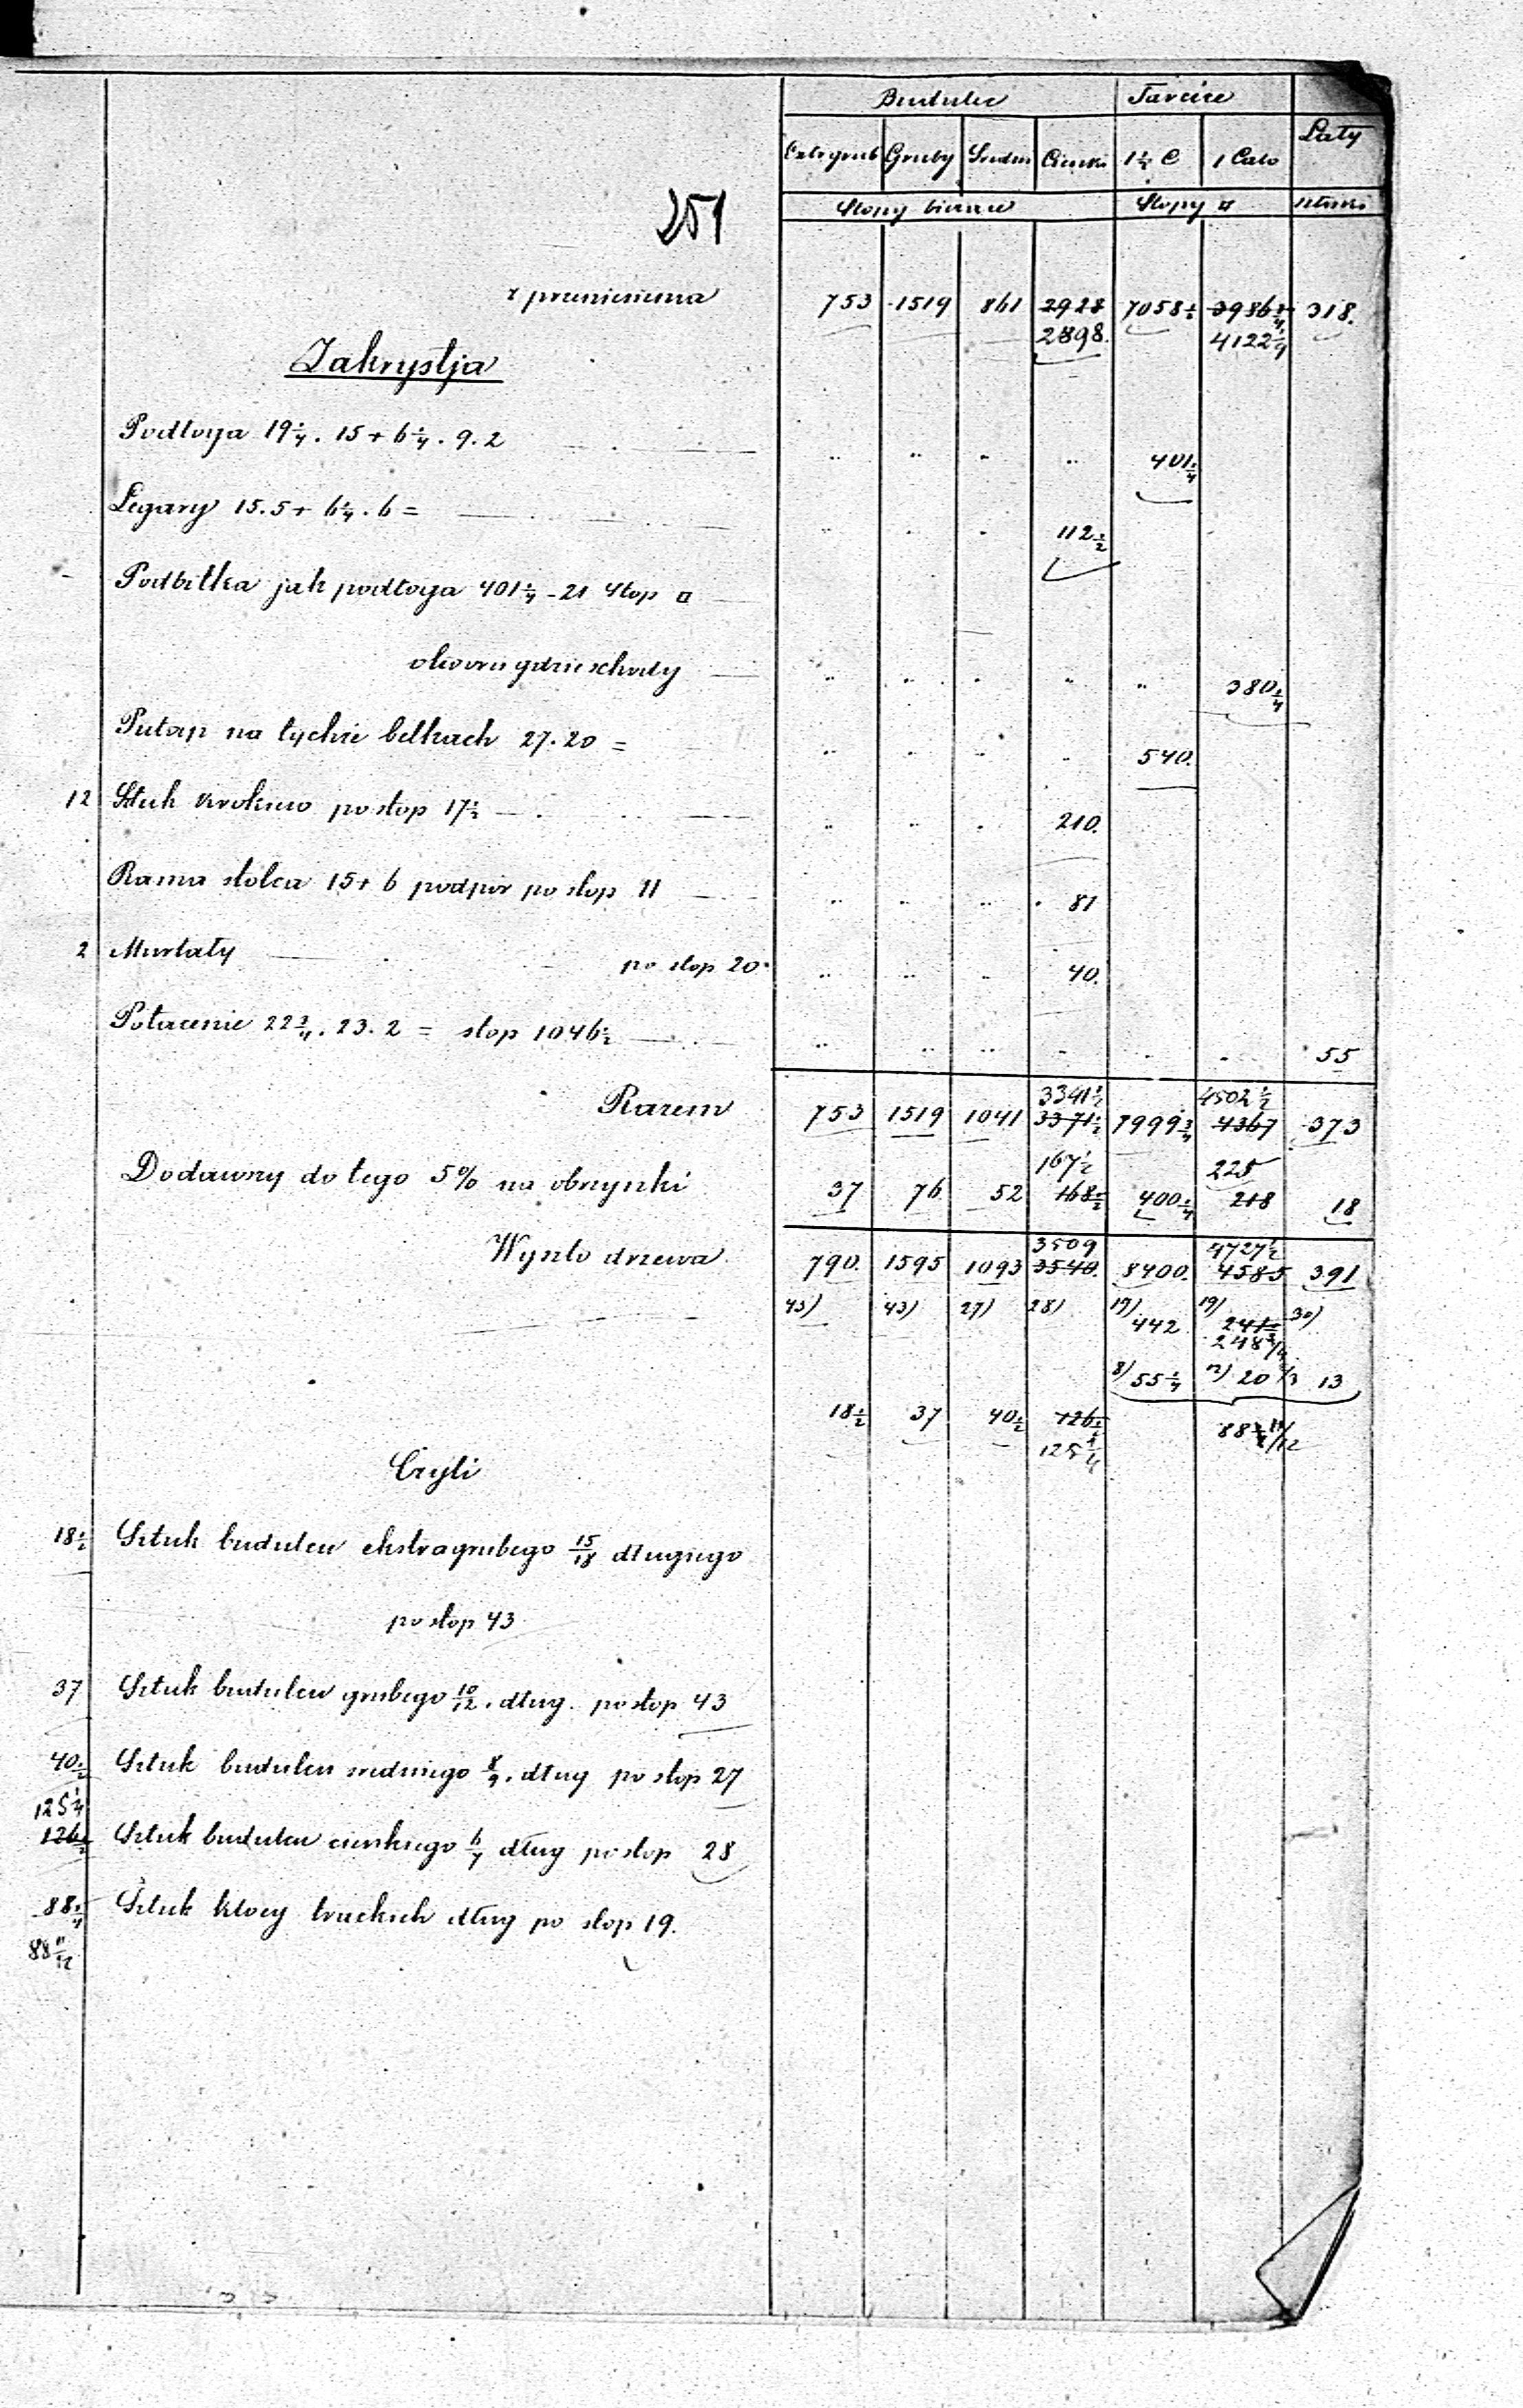 Budulec Tarcice
Extr grub Gruby Średni Cienki 1½ C 1 Calo Łaty
Stopy bieżące Stopy □ sztuki
251
z przeniesienia 753 1519 861 2928 7058½ 3986¾ 318.
2898. 4122¼
Zakrystja
Podłoga 19¼. 15 + 6¼. 9. 2 401¼
Legary 15. 5 + 6¼. 6 = 112½
Podbitka jak podłoga 401¼ - 21 stop □
otworu gdzie schody 380¼
Pułap na tychże belkach 27. 20 = 540.
12 Sztuk krokwio po stop 17½ 210.
Rama stolca 15 + 6 podpor po stop 11 81
2 Murłaty po stop 20 40.
Połacenie 22¾. 23. 2 = stop 1046½ 55
3341½ 4502½
Razem 753 1519 1041 3371½ 7999¾ 4367 373
167½ 225
Dodawszy do tego 5% na obrzynki 37 76 52 168½ 400¼ 218 18
3509 4727½
Wyszło drzewa 790. 1595 1093 3540. 8400. 4585 391
43) 43) 27) 28) 19) 442 19) 241½ 30)
248¾
8) 55¼ 12) 20 13
18½ 37 40½ 126½ 88 11/12
125¼
Czyli
18½ Sztuk budulcu ekstragrubego 15/18 długiego
po stop 43
37 Sztuk budulcu grubego 10/12. dług. po stop 43
40½ Sztuk budulcu średniego 8/9. dług po stop 27
125¼
126½ Sztuk budulcu cienkiego 6/7 dług po stop 28
88¼ Sztuk klocy trackich dług po stop 19.
88 11/12